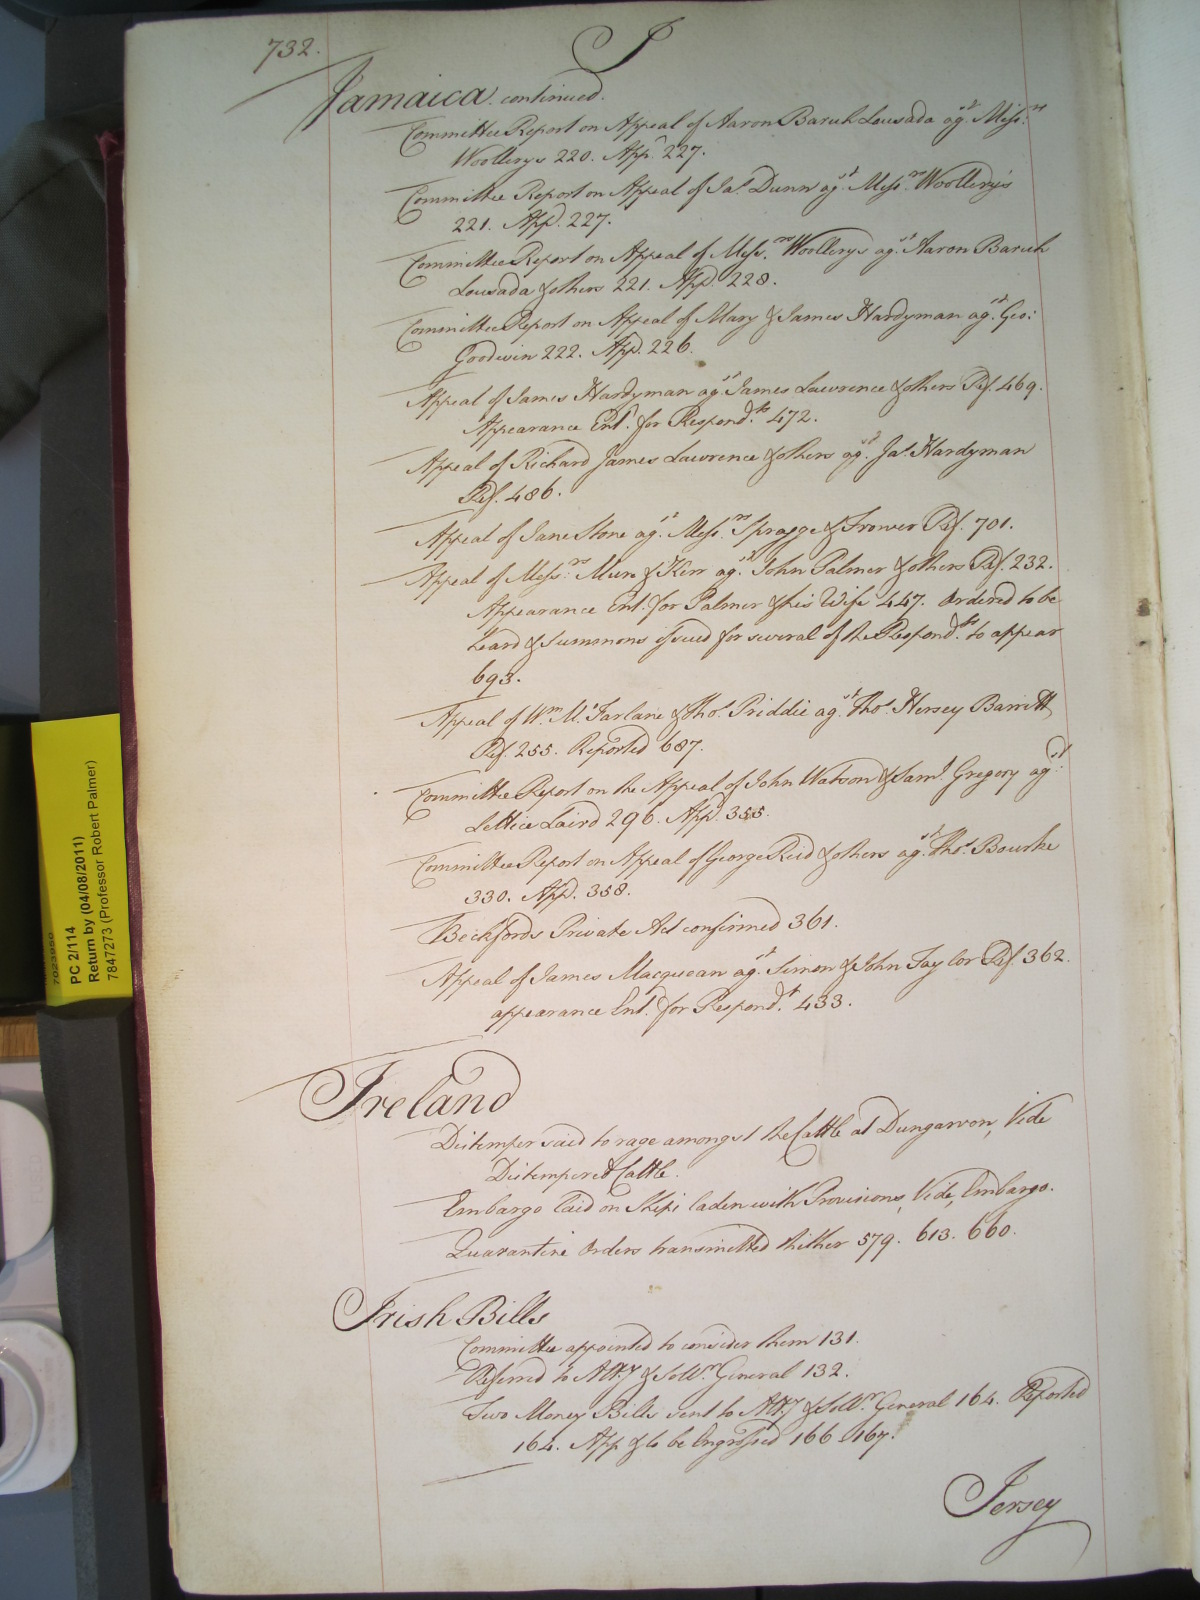 732.
J
Jamaica continued.
Committee Report on Appeal of Aaron Baruh Lousada agst. Messrs.
Woollerys 220. App'd 227.
Committee Report on Appeal of Jas. Dunn agst. Messrs. Woollery's
221. App'd. 227.
Committee Report on Appeal of Messrs. Woollerys agst. Aaron Baruh
Lousada & others 221. App'd. 228.
Committee Report on Appeal of Mary & James Hardyman agst. Geo:
Goodwin 222. App'd. 226.
Appeal of James Hardyman agst. James Lawrence & others Ref. 469.
Appearance Ent'd. for Respondts. 472.
Appeal of Richard James Lawrence & others agst. Jas. Hardyman
Ref. 486.
Appeal of Jane Stone agst. Messrs. Spragge & Trower Ref. 701.
Appeal of Messrs. Mure & Kerr agst. John Palmer & others Ref. 232.
Appearance Ent'd. for Palmer & his Wife 447. Ordered to be
heard & Summons issued for several of the Respondts. to appear
693.
Appeal of Wm. Mc. Farlane & Thos. Priddie agst. Thos. Hersey Barritt
Ref. 255. Reported 687.
Committee Report on the Appeal of John Watson & Saml. Gregory agst.
Lettice Laird 296. App'd. 355.
Committee Report on Appeal of George Reid & others agst. Thos. Bourke
330. App'd. 358.
Beckfords Private Act confirmed 361.
Appeal of James Macquean agst. Simon & John Taylor Ref. 362.
appearance Ent'd. for Respondt. 433.
Ireland
Distemper said to rage amongst the Cattle at Dungarvon, Vide
Distempered Cattle.
Embargo laid on Ships laden with Provisions, Vide, Embargo.
Quarantine Orders transmitted thither 579. 613. 660.
Irish Bills
Committee appointed to consider them 131.
Referred to Atty. & Sollr. General 132.
Two Money Bills sent to Atty. & Sollr. General 164. Reported
164. App'd & to be Engrossed 166. 167.
Jersey
7023950
PC 2/114
Return by (04/08/2011)
7847273 (Professor Robert Palmer)